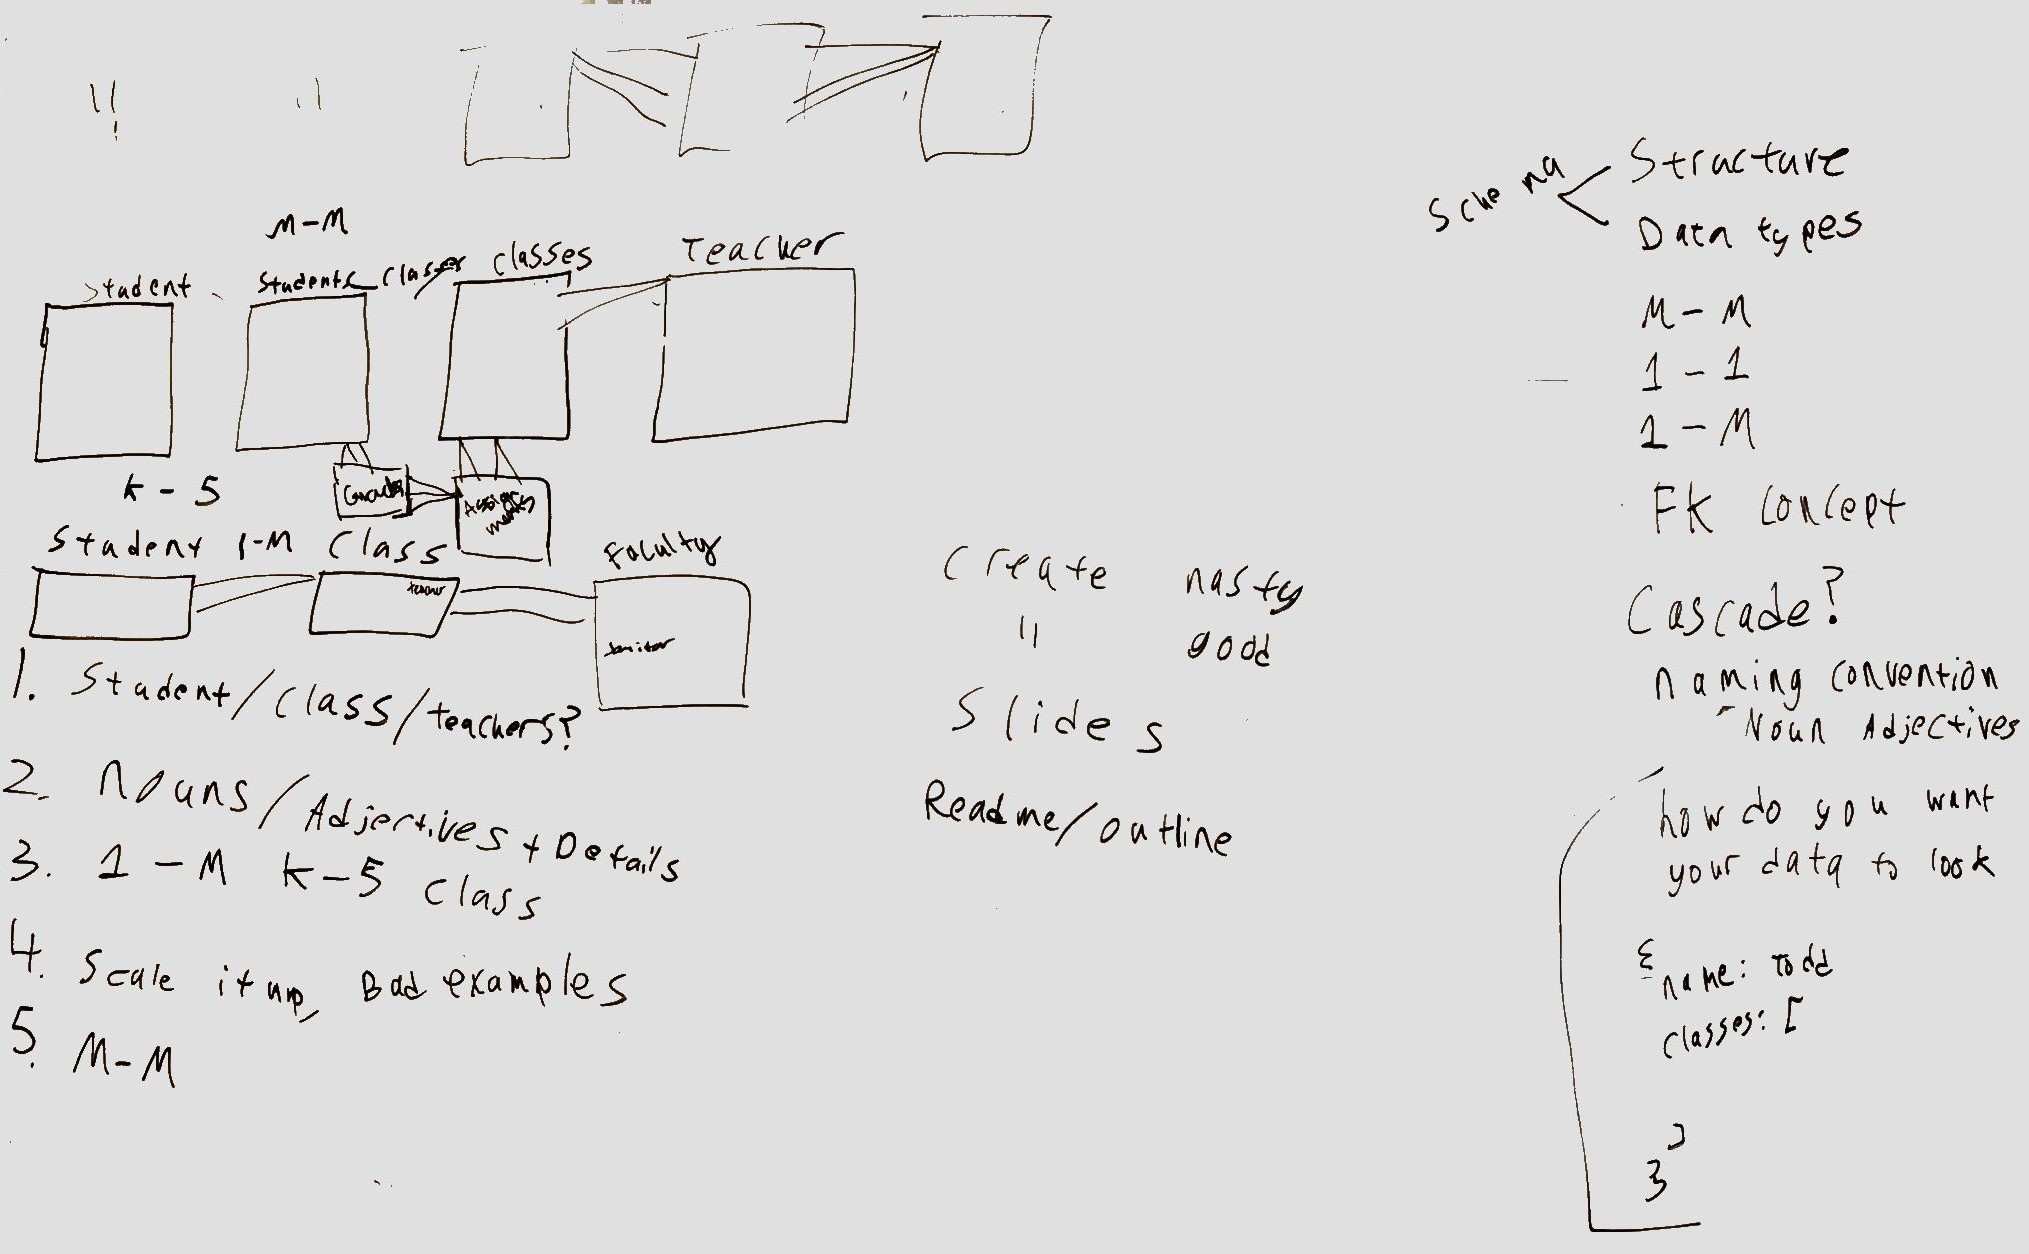 M-M
Student
Students_Classes
Classes
Teacher
K-5
Grades
Assignments
Student 1-M Class
Faculty
Janitor
1. Student/Class/teachers?
2. Nouns/Adjectives + Details
3. 1-M K-5 Class
4. Scale it up, Bad examples
5. M-M
Create nasty
" good
Slides
Readme/outline
Schema
Structure
Data types
M-M
1-1
1-M
FK concept
Cascade?
naming convention
- Noun Adjectives
how do you want
your data to look
{
name: Todd
classes: [
]
}